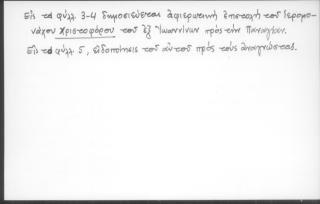 Εἰς τὰ φύλλ. 3-4 δημοσιεύεται ἀφιερωτική ἐπιστολή τοῦ Ἱερομο-
νάχου Χριστοφόρου τοῦ ἐξ Ἰωαννίνων πρός τήν Παναγίαν.
Εἰς τό φύλλ. 5, εἰδοποίησις τοῦ αὐτοῦ πρός τούς ἀναγνώστας.